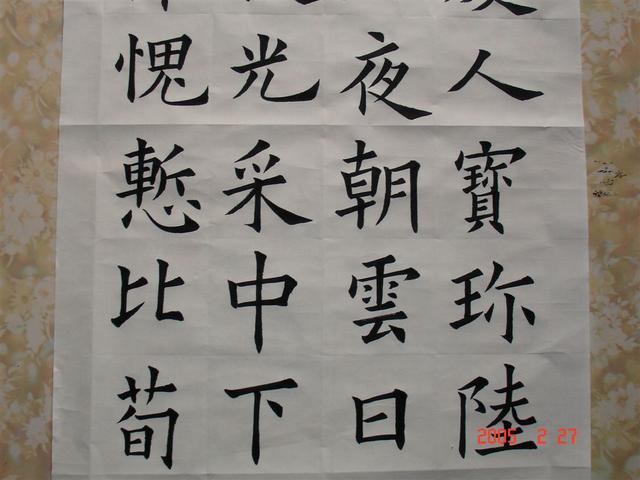 人寶珎陸
夜朝雲日
光采中下
愧慙比荀
2005 2 27